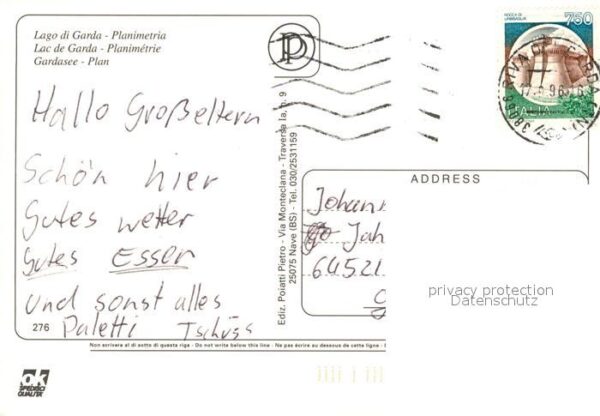 Lago di Garda - Planimetria
Lac de Garda - Planimétrie
Gardasee - Plan
Hallo Großeltern
Schön hier
Gutes wetter
Gutes Essen
und sonst alles
Paletti Tschüss
276
Ediz. Poiatti Pietro - Via Monteclana - Traversa Ia, n. 9
25075 Nave (BS) - Tel. 030/2531159
ROCCA DI URBISAGLIA
750
ITALIA
38066 RIVA DEL GARDA (TN)
ADDRESS
Johann
Jah
64521
privacy protection
Datenschutz
Non scrivere al di sotto di questa riga - Do not write below this line - Ne pas écrire au dessous de cette ligne
ok
SPEDIBILI
QUALITÀ